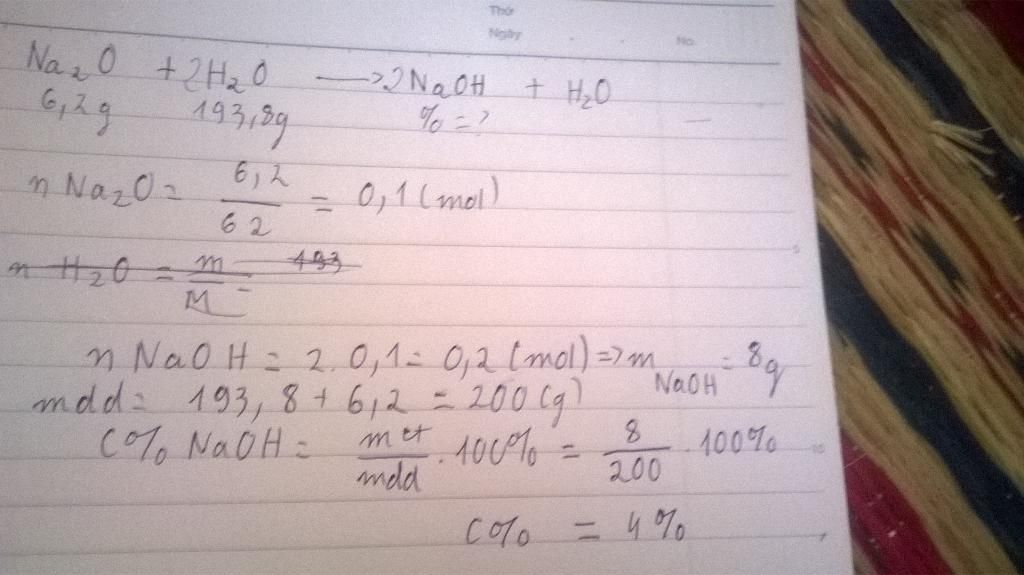 Thứ
Ngày
No.
Na₂O + 2H₂O ⟶ 2NaOH + H₂O
6,2g 193,8g % = ?
n Na₂O = 6,2 / 62 = 0,1 (mol)
n H₂O = m / M = 193
n NaOH = 2.0,1 = 0,2 (mol) => m NaOH = 8g
mdd = 193,8 + 6,2 = 200 (g)
C% NaOH = mct / mdd . 100% = 8 / 200 . 100%
C% = 4%